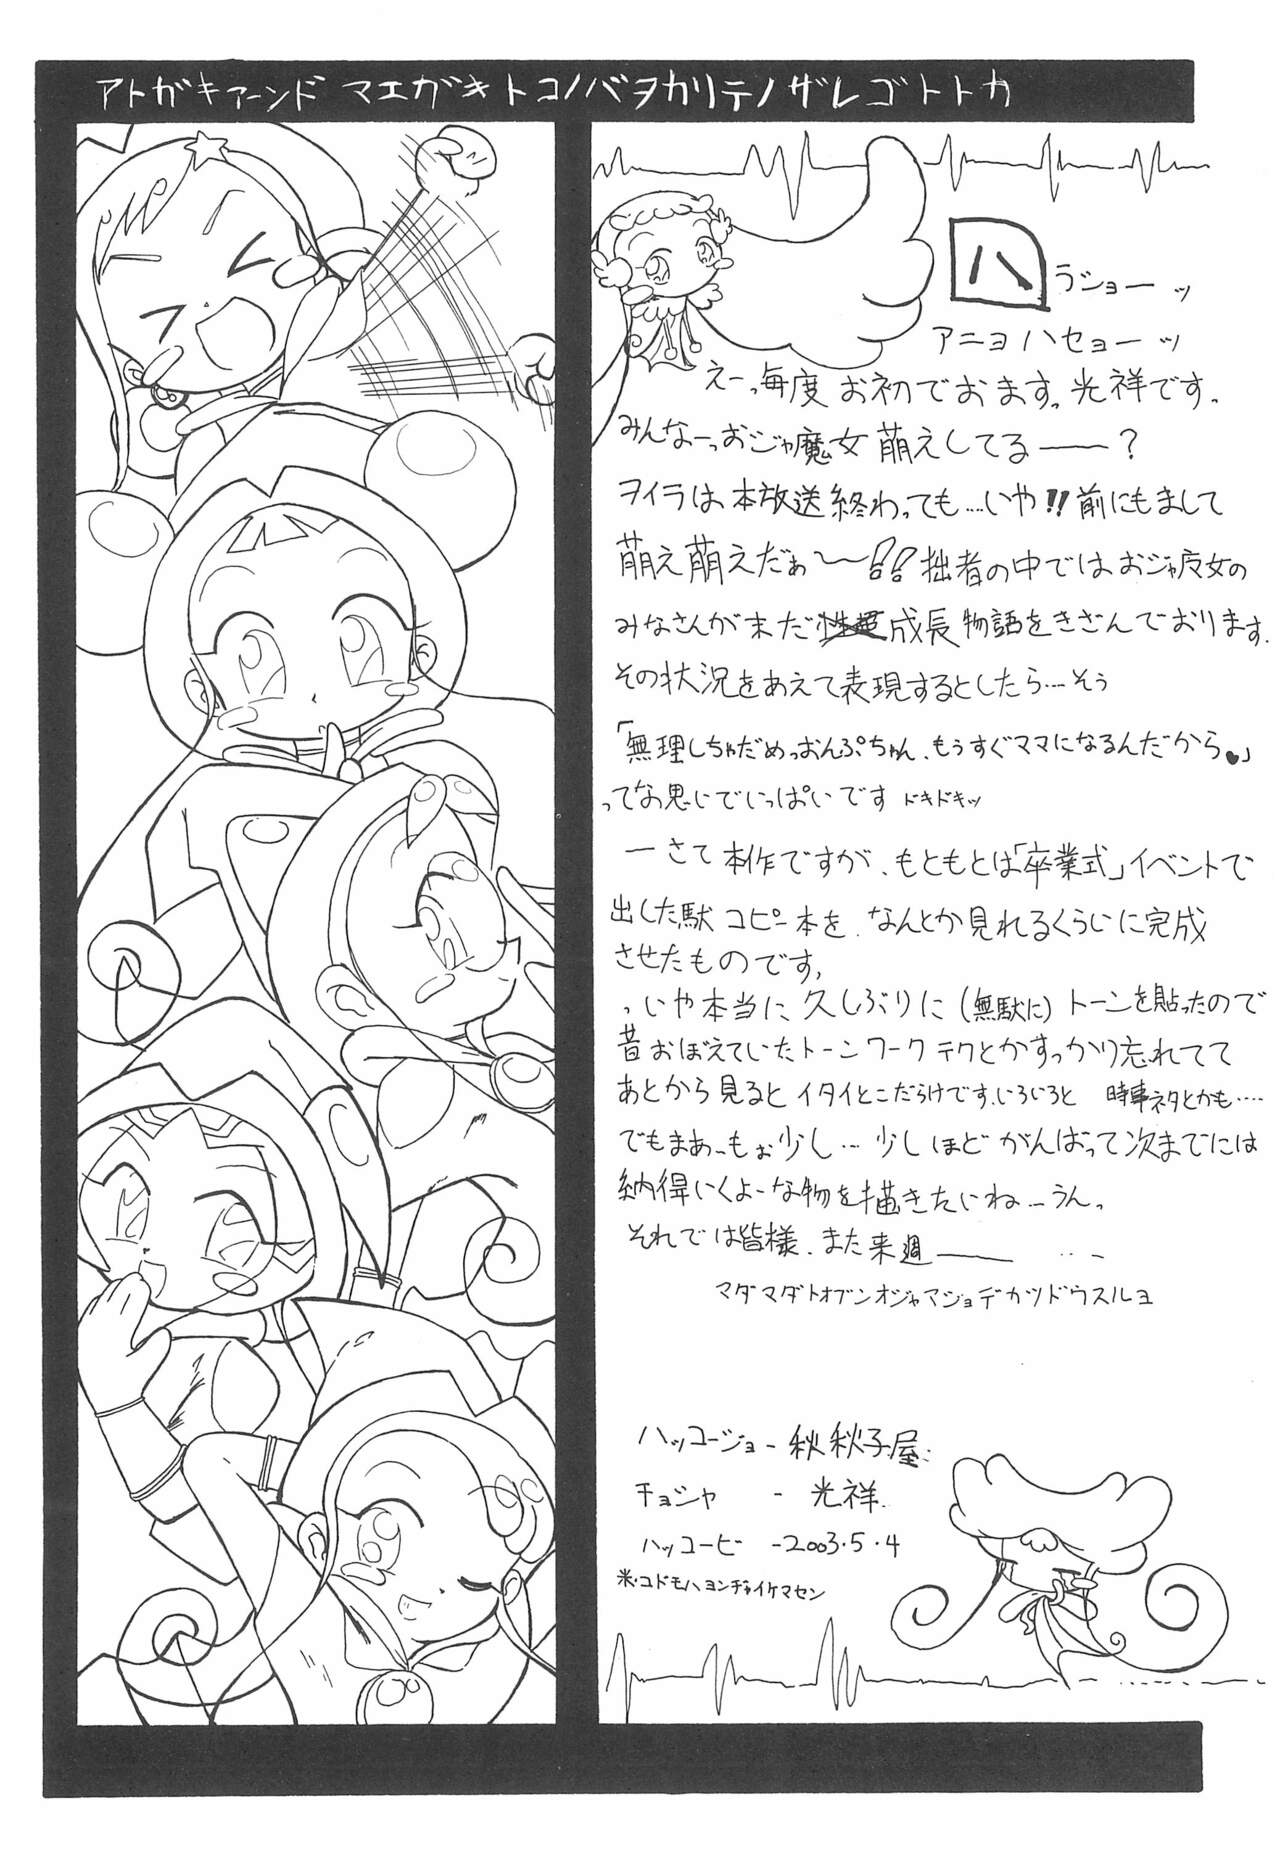 アトガキアーンド マエガキトコノバヲカリテノザレゴトトカ
ハラショーッ
アニョハセョーッ
えーっ毎度お初でおます。光祥です。
みんなーっおジャ魔女萌えしてるー？
ヲイラは本放送終わっても‥‥いや!!前にもまして
萌え萌えだぁ〜!!拙者の中ではおジャ魔女の
みなさんが未だ成長物語をきざんでおります。
その状況をあえて表現するとしたら‥‥そぅ
「無理しちゃだめっおんぷちゃん、もうすぐママになるんだから♥」
ってな感じでいっぱいです ドキドキッ
ーさて本作ですが、もともとは「卒業式」イベントで
出した駄コピー本を、なんとか見れるくらいに完成
させたものです。
、いや本当に久しぶりに(無駄に)トーンを貼ったので
昔おぼえていたトーンワークテクとかすっかり忘れてて
あとから見るとイタイとこだらけです、いろいろと 時事ネタとかも‥‥
でもまあーもぉ少し‥‥少しほどがんばって次までには
納得いくよーな物を描きたいね‥‥うん。
それでは皆様、また来週ーー ‥‥
マダマダトオブンオジャマジョデカツドウスルヨ
ハッコージョ - 秋秋子屋
チョシャ - 光祥
ハッコービ - 2003・5・4
※・コドモハヨンヂャイケマセン